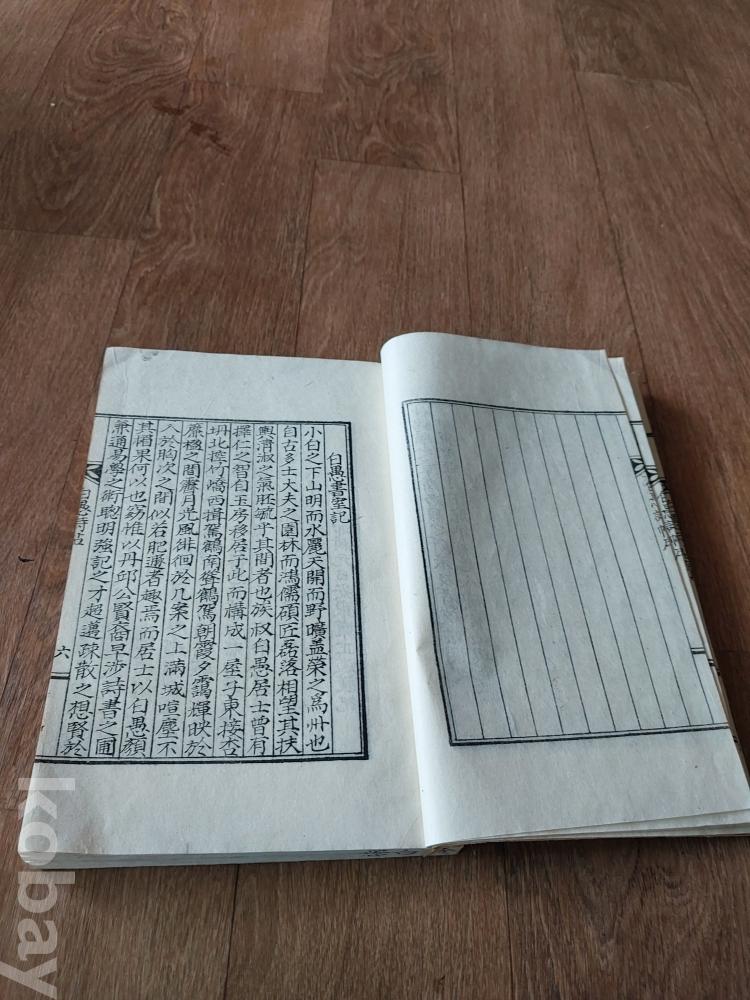 白愚書室記
小白之下山明而水麗天開而野曠盖榮之爲州也
自古多士大夫之園林而鴻儒碩匠磊落相望其扶
輿淸淑之氣胚毓乎其間者也族叔白愚居士曾有
擇仁之智自玉房移居于此而構成一屋子東接杏
坍北控竹嶠西揖鴛鶴南聳鶴駕朝霞夕靄輝映於
簾楹之間霽月光風徘徊於几案之上滿城喧塵不
入於胸次之間似若肥遯者趣焉而居士以白愚顔
其楣果何以也窃惟以丹邱公賢裔早涉詩書之圃
兼通易學之術聰明強記之才超邁疎散之想賢於
白愚詩稿
六
kobay